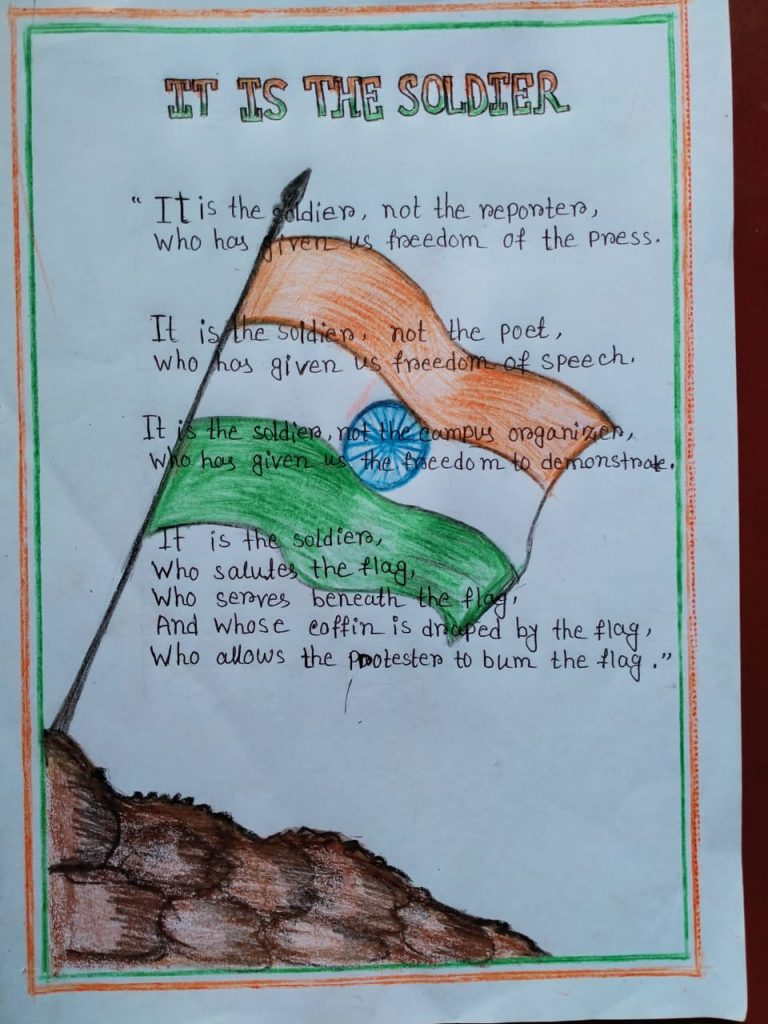 IT IS THE SOLDIER
“ It is the soldier, not the reporter,
Who has given us freedom of the press.
It is the soldier, not the poet,
Who has given us freedom of speech.
It is the soldier, not the campus organizer,
Who has given us the freedom to demonstrate.
It is the soldier,
Who salutes the flag,
Who serves beneath the flag,
And whose coffin is draped by the flag,
Who allows the protester to burn the flag.”